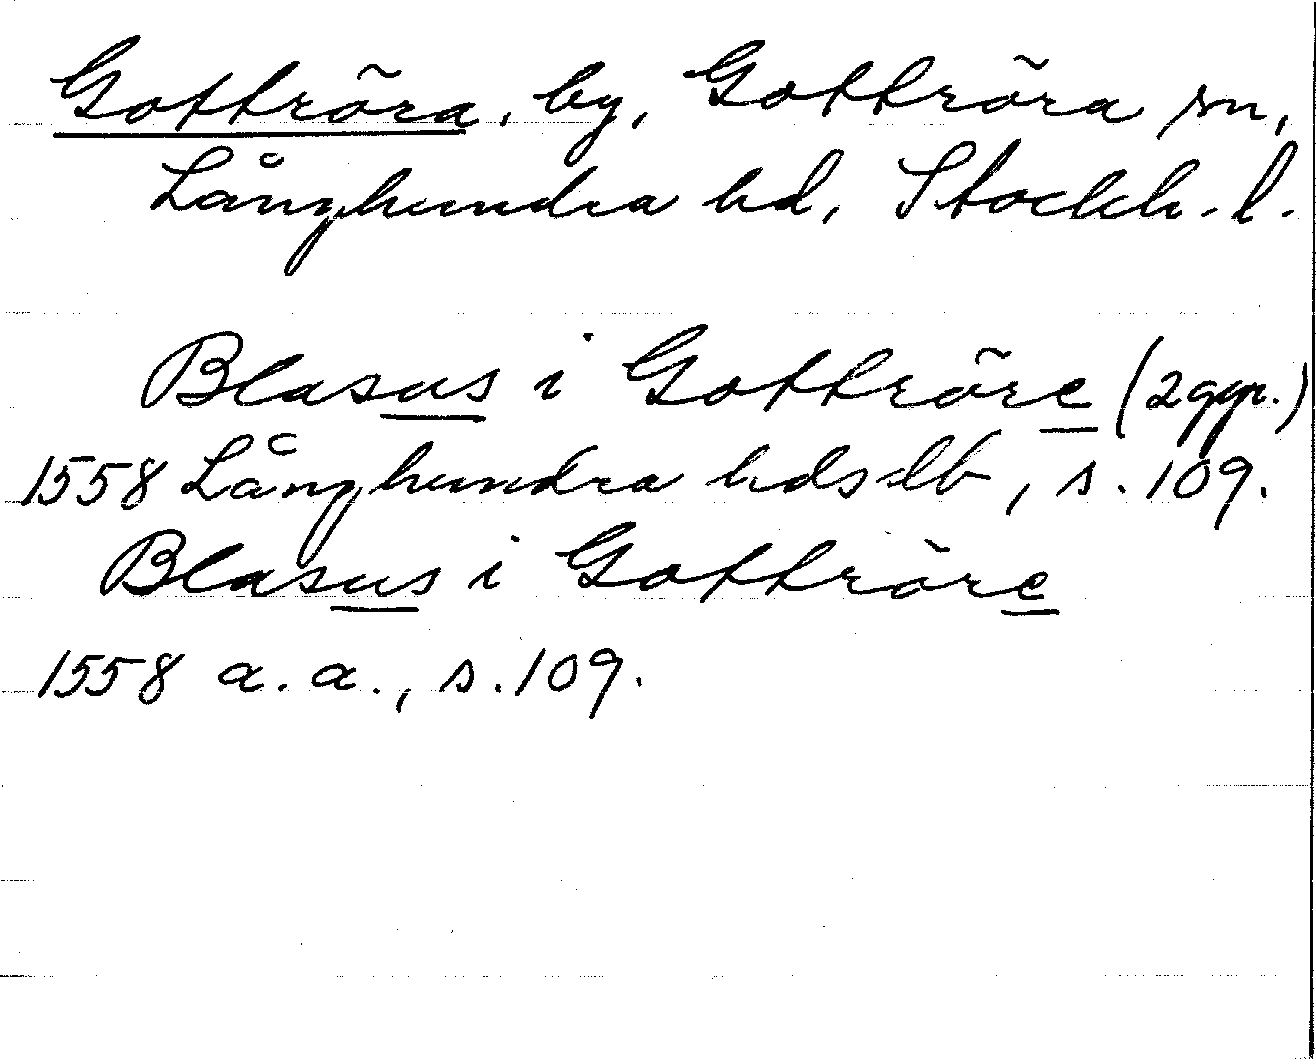 Gottröra, by, Gottröra sn,
Långhundra hd, Stockh. l.
Blasus i Gottröre (2 ggr.)
1558 Långhundra hdslb, s. 109.
Blasus i Gottröre
1558 a. a., s. 109.